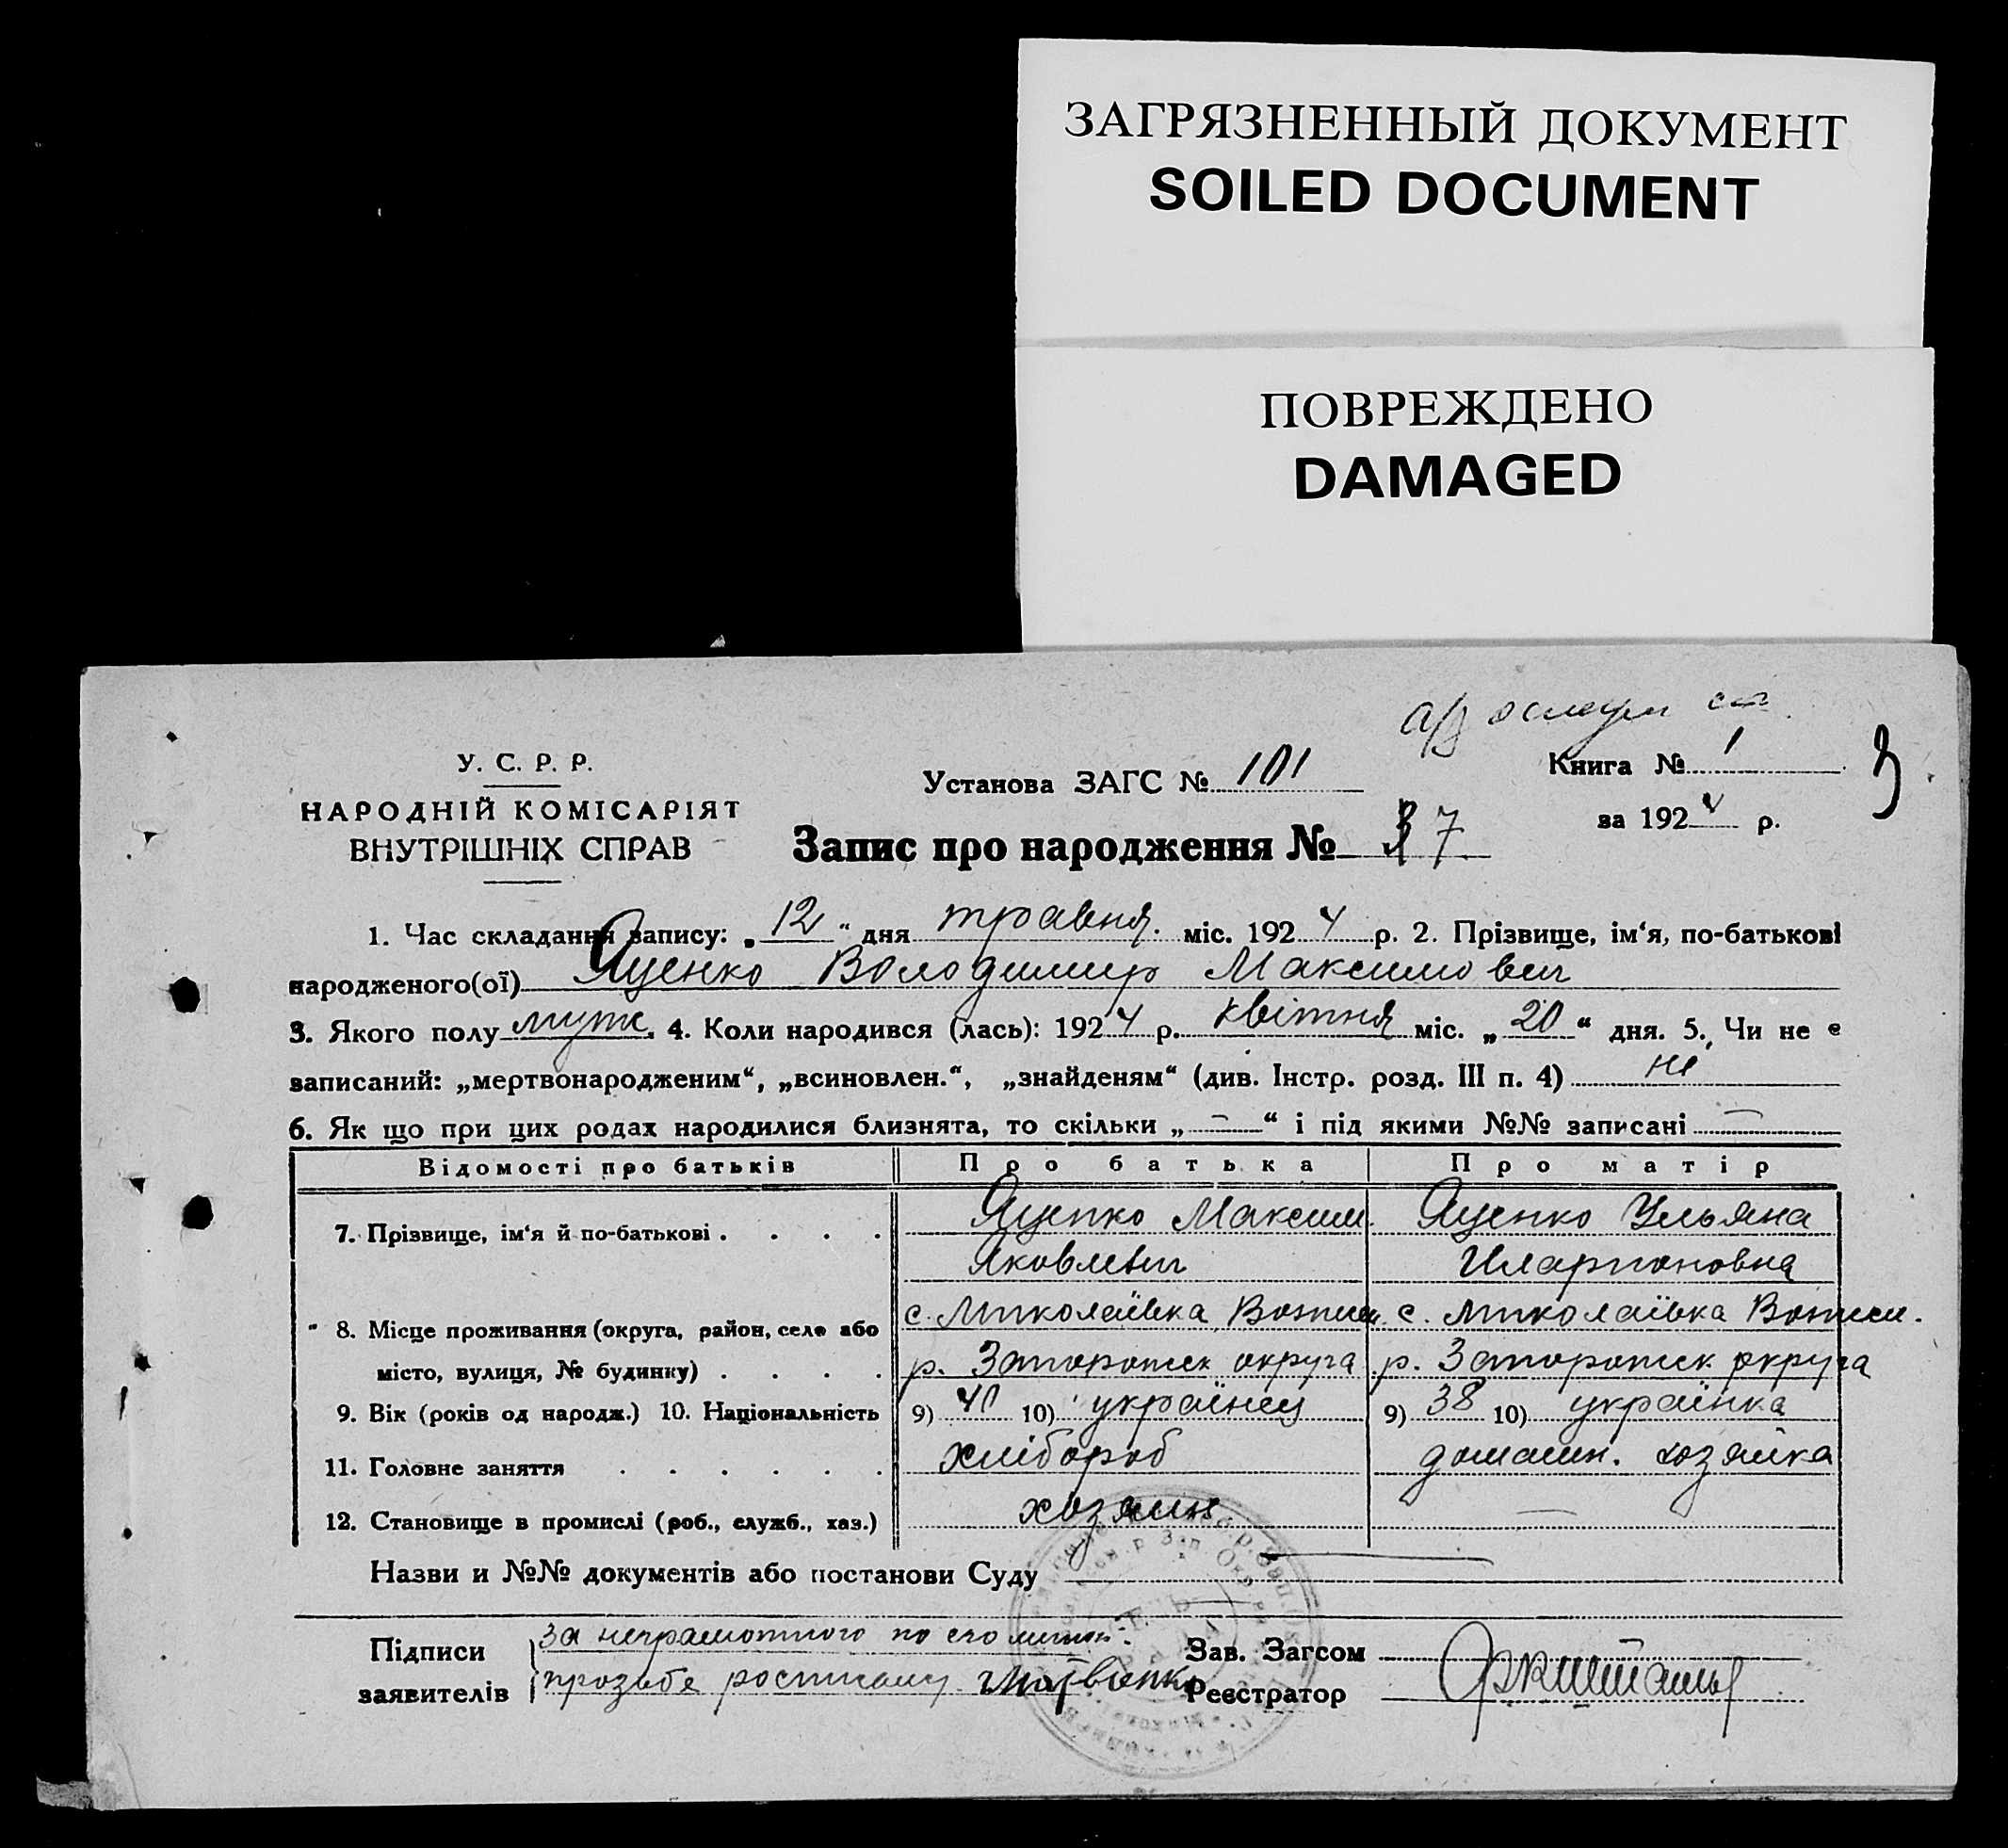 ЗАГРЯЗНЕННЫЙ ДОКУМЕНТ
SOILED DOCUMENT
ПОВРЕЖДЕНО
DAMAGED
У. С. Р. Р.
НАРОДНІЙ КОМІСАРІЯТ
ВНУТРІШНІХ СПРАВ
Установа ЗАГС № 101
Книга № 1
за 1924 р.
3
Запис про народження № 37
1. Час складання запису: „12“ дня травня. міс. 1924 р. 2. Прізвище, ім‘я, по-батькові
народженого(ої) Яценко Володимир Максимович
3. Якого полу муж. 4. Коли народився (лась): 1924 р. квітня міс. „20“ дня. 5. Чи не є
записаний: „мертвонародженим“, „всиновлен.“, „знайденям“ (див. Інстр. розд. III п. 4) ні
6. Як що при цих родах народилися близнята, то скільки „—“ і під якими №№ записані —
Відомості про батьків Про батька Про матір
7. Прізвище, ім‘я й по-батькові . . . . Яценко Максим. Яценко Ульяна
Яковлевич Иларионовна
8. Місце проживання (округа, район, село або с. Миколаївка с. Миколаївка
місто, вулиця, № будинку) . . . . р. Запорожск округа р. Запорожск округа
9. Вік (років од народж.) 10. Національність 9) 40 10) українец 9) 38 10) українка
11. Головне заняття . . . . . . хлібороб домашн. хозяйка
12. Становище в промислі (роб., служб., хаз.) хозяин —
Назви и №№ документів або постанови Суду —
Підписи за неграмотного по его личн. Зав. Загсом
заявителів прозьбе росписался Реєстратор